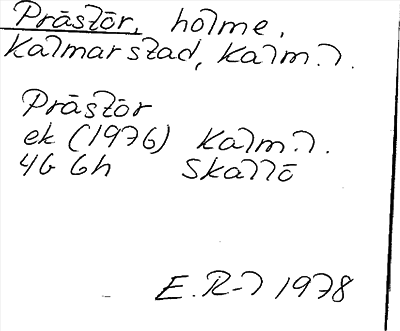 Prästör, holme,
Kalmar stad, Kalm. l.
Prästör
ek (1976) Kalm. l.
4G 6h Skallö
E. R-l 1978